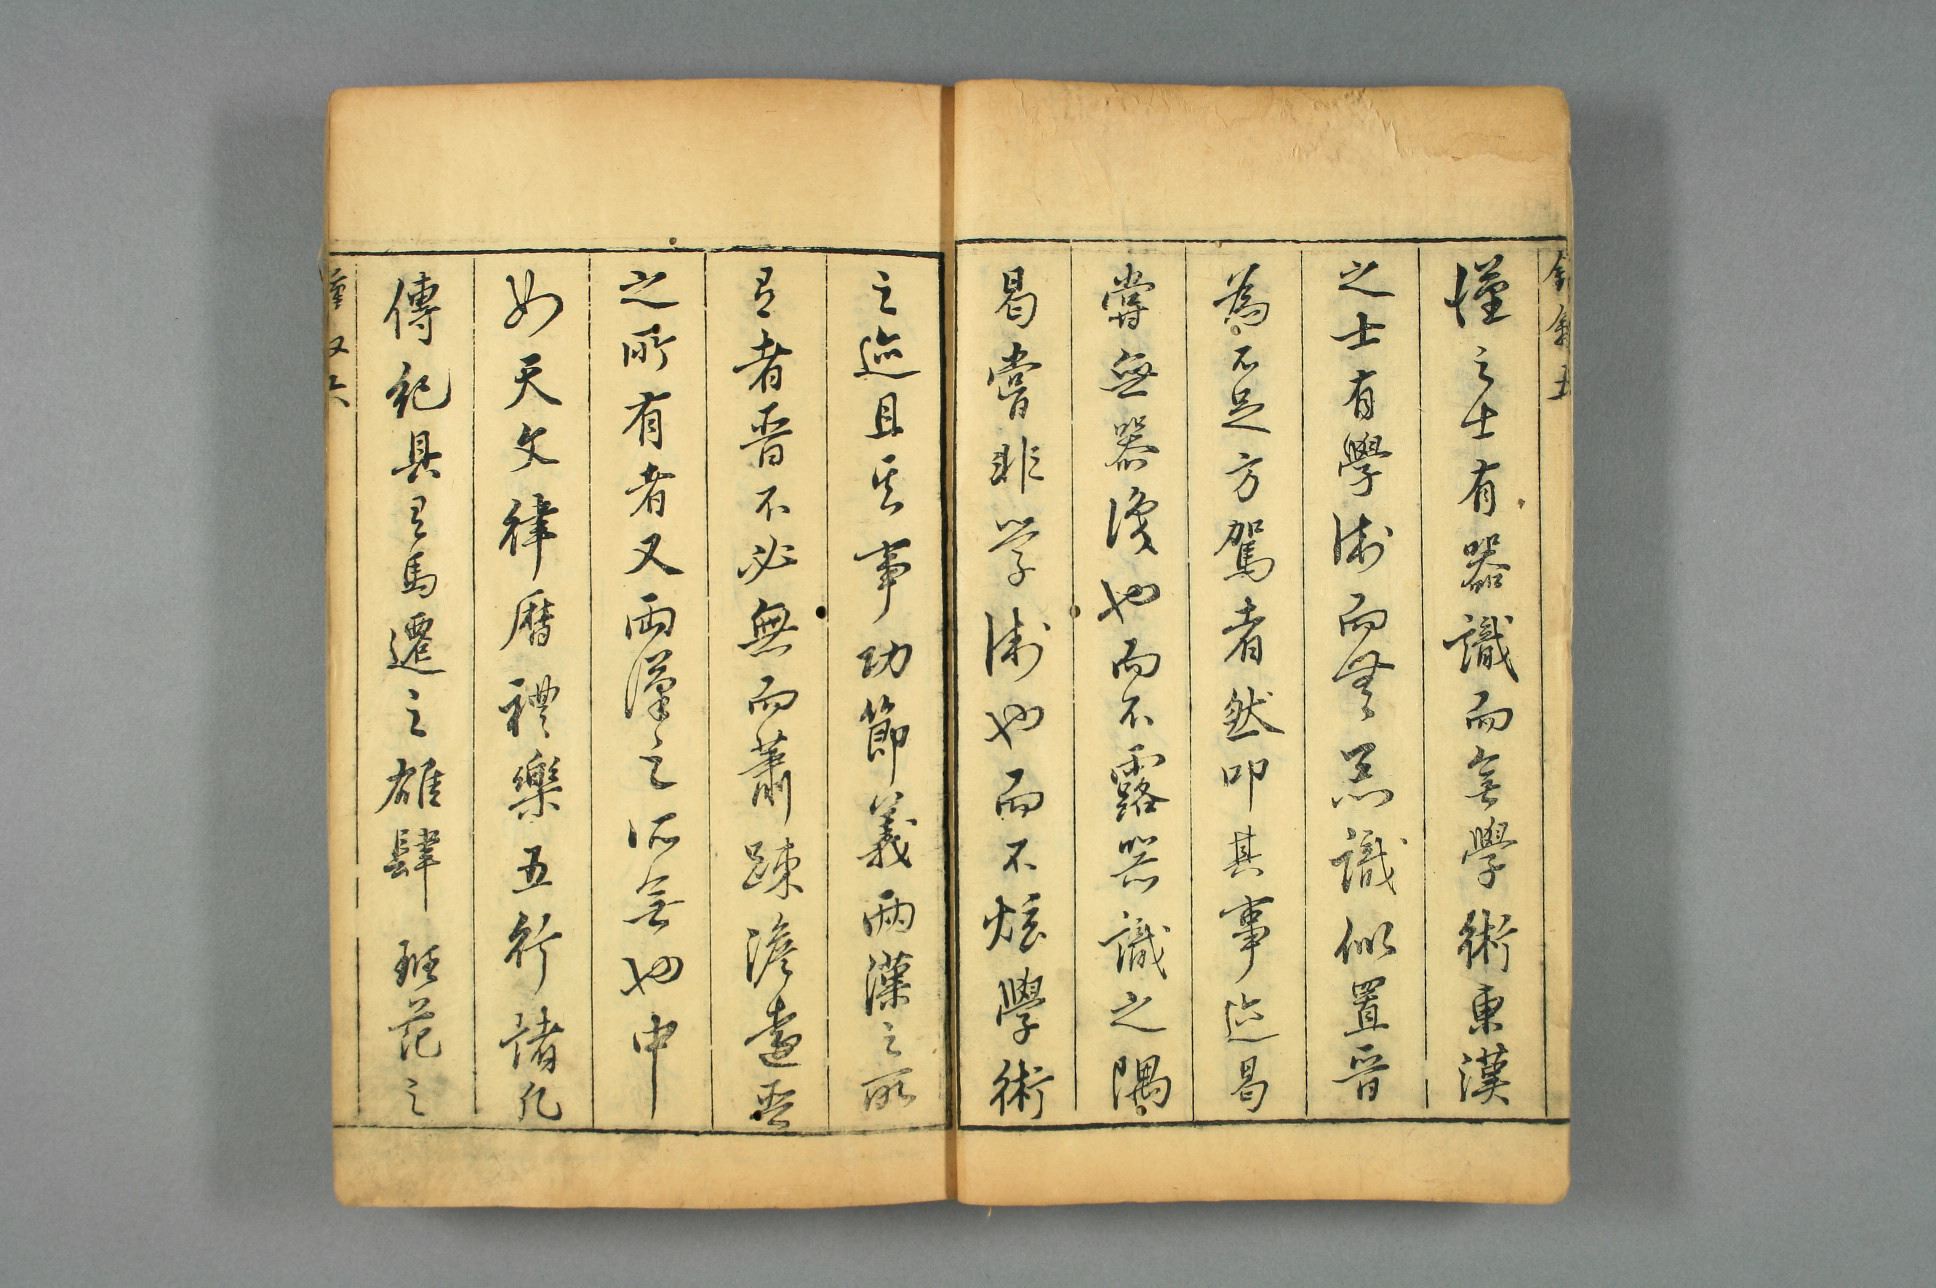 漢之士有器識而無學術東漢
之士有學術而無器識似置晉
為不足方駕者然叩其事迹曷
嘗無器識也而不露器識之隅
曷嘗非學術也而不炫學術
之迹且其事功節義兩漢之所
有者晉不必無而蕭疎澹遠晉
之所有者又兩漢之所無也中
如天文律曆禮樂五行諸凡
傳紀具有馬遷之雄肆班范之